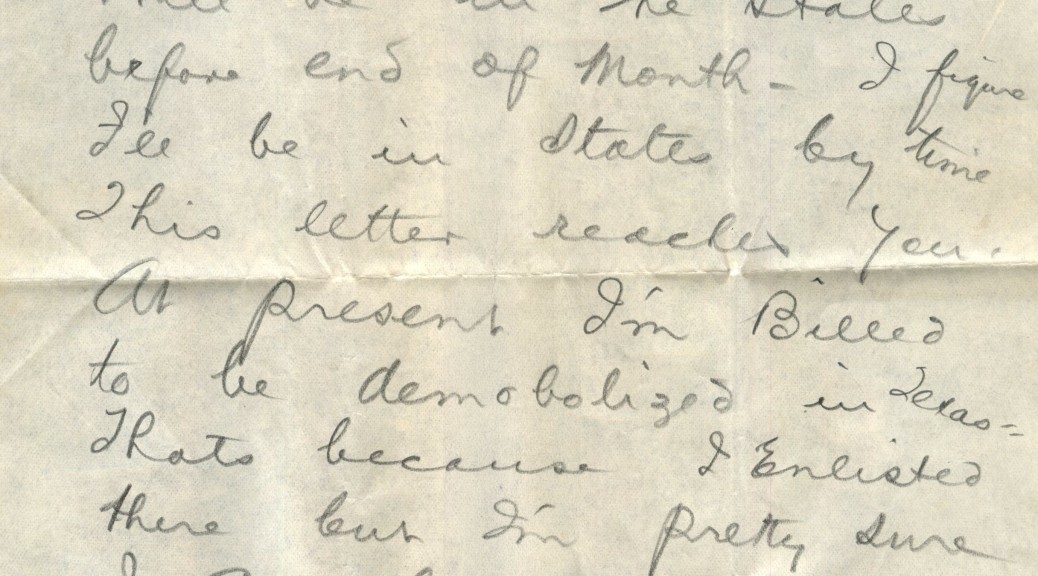 be in the States
before end of Month - I figure
I'll be in States by time
This letter reaches You.
At present I'm Billed
to be demobolized in Texas -
Thats because I Enlisted
there but I'm pretty sure